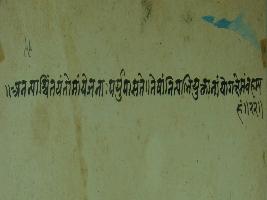 ॥अनन्याश्चिंतयंतोमांयेजनाःपर्युपासते॥तेषांनित्याभियुक्तानांयोगक्षेमंवहाम्य
हं॥२२॥